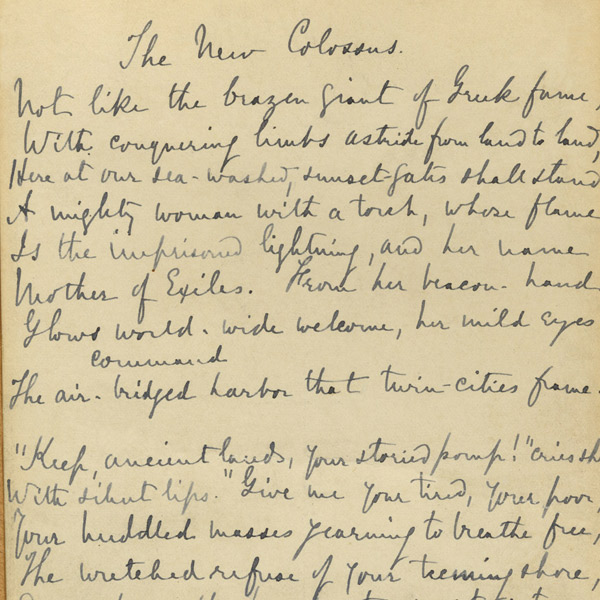 The New Colossus.
Not like the brazen giant of Greek fame,
With conquering limbs astride from land to land,
Here at our sea-washed, sunset-gates shall stand
A mighty woman with a torch, whose flame
Is the imprisoned lightning, and her name
Mother of Exiles. From her beacon-hand
Glows world-wide welcome, her mild eyes
command
The air-bridged harbor that twin-cities frame.
"Keep, ancient lands, your storied pomp!" cries she
With silent lips. "Give me your tired, your poor,
Your huddled masses yearning to breathe free,
The wretched refuse of your teeming shore,